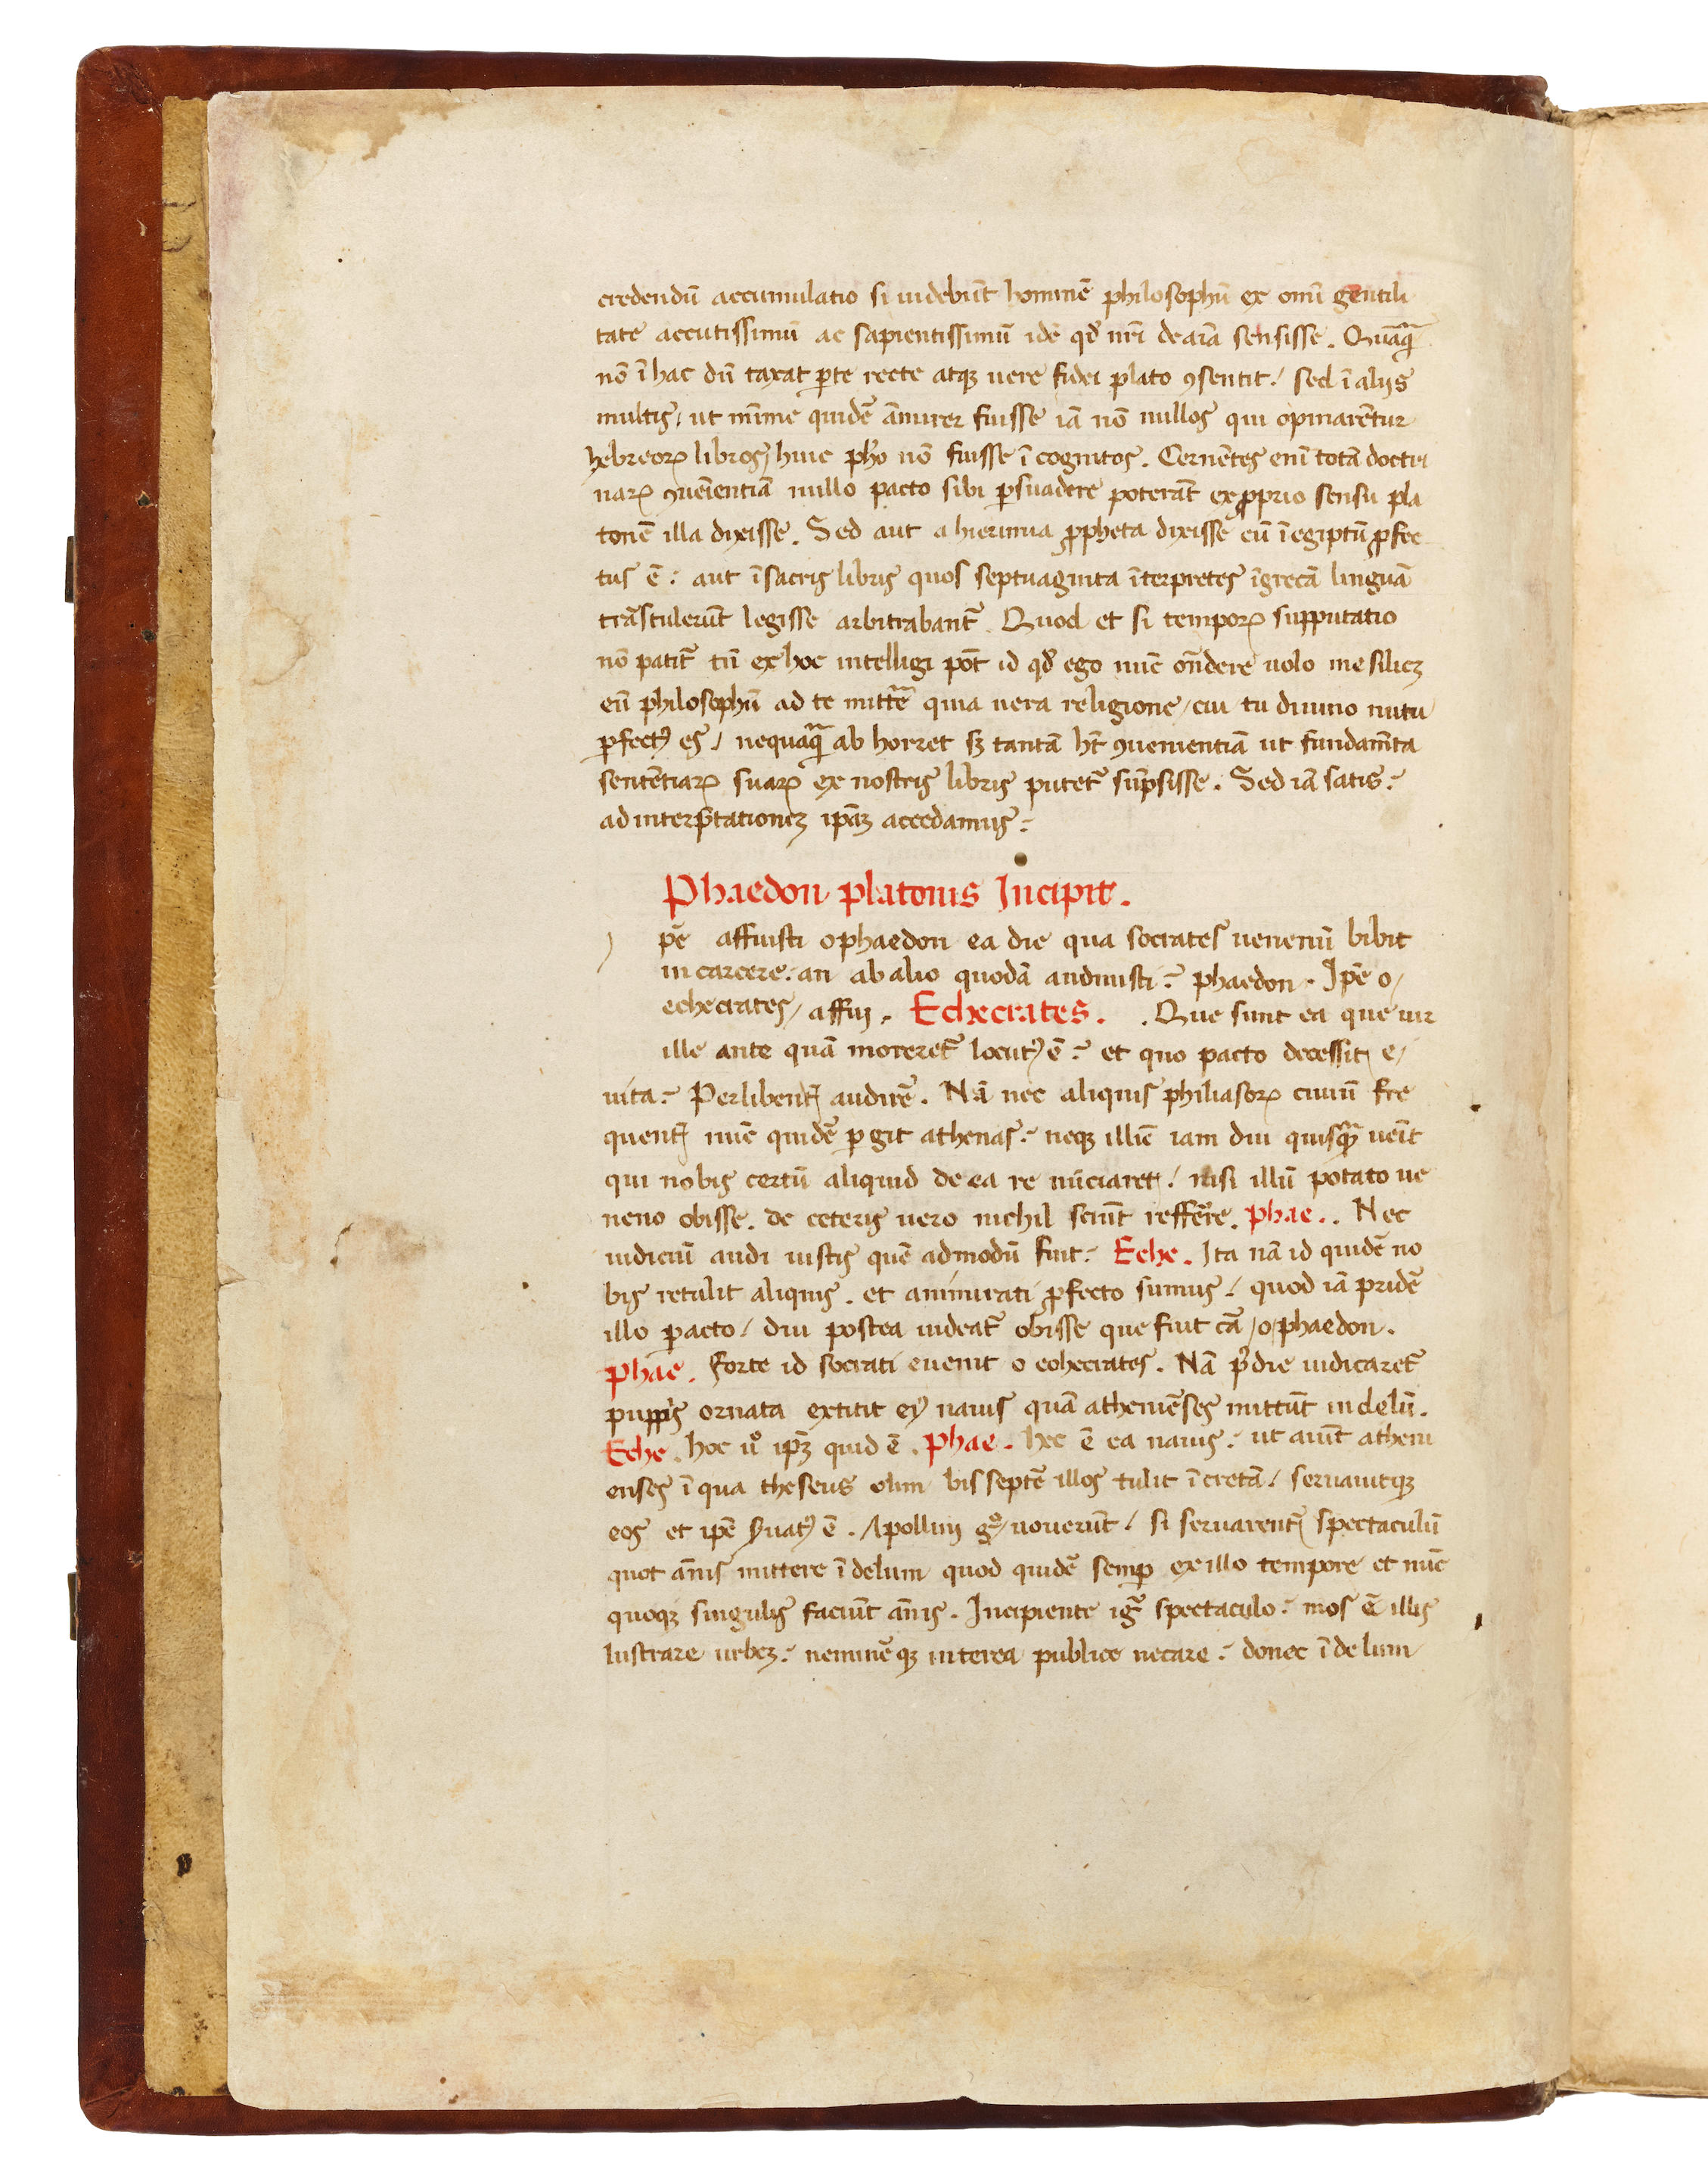 credendū accumulatio si uidebūt hominē philosophū ex omī gentili
tate accutissimū ac sapientissimū idē qđ nrī de aīa sensisse. Quāqᷓ
nō ī hac dū taxat ꝑte recte atqꝫ uere fidei plato ꝯsentit / sed ī alijs
multis / ut mīme quidē āmirer fuisse iā nō nullos qui opinarētur
hebreoꝝ libros / huic pho nō fuisse ī cognitos. Cernētes enī totā doctri
naꝝ ꝯueīentiā nullo pacto sibi ꝑsuadere poterāt ex ꝓprio sensu pla
tonē illa dixisse. Sed aut a hierimia ꝓpheta dixisse cū ī egiptū ꝓfec
tus ē : aut ī sacris libris quos septuaginta īterpretes ī grecā linguā
trāstulerūt legisse arbitrabant᷑. Quod et si tempoꝝ supputatio
nō patit᷑ tū ex hoc intelligi pōt id qđ ego nūc oñdere uolo me silicꝫ
eū philosophū ad te mittē quia uera religione / cui tu diuino nutu
ꝑfectꝰ es / nequaqᷓ ab horret sꝫ tantā hт̄ ꝯuenientiā ut fundam̄ta
sentētiaꝝ suaꝝ ex nostris libris putet᷑ sūpsisse. Sed iā satis :
ad interp̄tationeꝫ ipāꝫ accedamus :
Phaedon platonis Incipit.
pē affuisti o phaedon ea die qua socrates uenenū bibit
in carcere : an ab alio quodā audiuisti : phaedon. Ipē o /
echecrates / affui. Echecrates. . Que sunt ea que uir
ille ante quā moreret᷑ locutꝰ ē : et quo pacto decessit e /
uita : Perlibent᷑ audirē. Nā nec aliquis philiasoꝝ ciuiū fre
quent᷑ nūc quidē ꝑ git athenas : neqꝫ illīc iam diu quisqᷓ ueīt
qui nobis certū aliquid de ea re nūciaret / nisi illū potato ue
neno obisse. de ceteris uero nichil sciūt refferre. phae. . Nec
iudiciū audi uistis quē admodū fuit : Eche. Ita nā id quidē no
bis retulit aliquis. et ammirati ꝓfecto sumus / quod iā pridē
illo ꝑacto / diu postea uideat᷑ obisse que fuit cā / o / phaedon.
phae. Forte id socrati euenit o echecrates. Nā p̄die iudicaret᷑
puppis ornata extitit eiꝰ nauis quā atheniēses mittūt in delū.
Eche. hoc u͛o ip̄ꝫ quid ē. Phae. hec ē ea nauis : ut aiūt atheni
enses ī qua theseus olim bis septē illos tulit ī cretā / seruauitqꝫ
eos et ipē s̄uatꝰ ē. Apollini gͦ / uouerūt / si seruarent᷑ spectaculū
quot ānis mittere ī delum quod quidē semꝑ ex illo tempore et nūc
quoqꝫ singulis faciūt ānis. Incipiente igᷓ spectaculo : mos ē illis
lustrare urbeꝫ : neminē qꝫ interea publice necare : donec ī delum